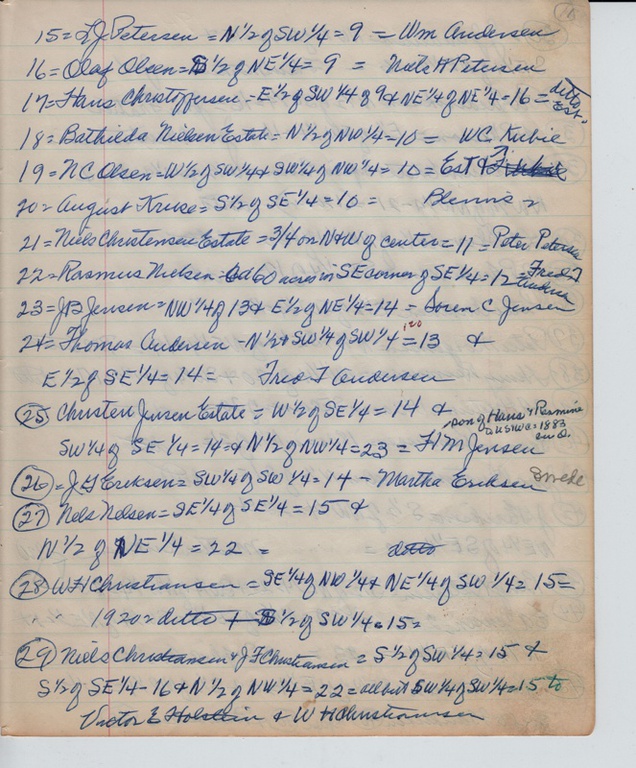 15 = L J Petersen = N 1/2 of SW 1/4 = 9 = Wm Andersen
16 = Olaf Olsen = S 1/2 of NE 1/4 = 9 = Niels H Petersen
17 = Hans Christoffersen = E 1/2 of SW 1/4 of 9 & NE 1/4 of NE 1/4 = 16 = ditto Est.
18 = Bathilda Nielsen Estate = N 1/2 of NW 1/4 = 10 = W C Kubie
19 = N C Olsen = W 1/2 of SW 1/4 & SW 1/4 of NW 1/4 = 10 = Est
20 = August Kruse = S 1/2 of SE 1/4 = 10 =
21 = Niels Christensen Estate = 3/4 on N & W of center = 11 = Peter Petersen
22 = Rasmus Nielsen = 60 acres in SE corner of SE 1/4 = 12 = Fred T Andersen
23 = J B Jensen = NW 1/4 of 13 & E 1/2 of NE 1/4 = 14 = Soren C Jensen
24 = Thomas Andersen - N 1/2 & SW 1/4 of SW 1/4 = 13 &
120
E 1/2 of SE 1/4 = 14 = Fred T Andersen
25 Christen Jensen Estate = W 1/2 of SE 1/4 = 14 &
son of Hans & Rasmine
= 1883
SW 1/4 of SE 1/4 = 14 & N 1/2 of NW 1/4 = 23 = H M Jensen
26 = J G Eriksen = SW 1/4 of SW 1/4 = 14 - Martha Eriksen Swede
27 Nels Nelsen = SE 1/4 of SE 1/4 = 15 &
N 1/2 of NE 1/4 = 22 = ditto
28 W H Christiansen = SE 1/4 of NW 1/4 & NE 1/4 of SW 1/4 = 15 =
" " 1920 = ditto + S 1/2 of SW 1/4 = 15 =
29 Niels Christiansen & J F Christiansen = S 1/2 of SW 1/4 = 15 &
S 1/2 of SE 1/4 - 16 & N 1/2 of NW 1/4 = 22 = all but SW 1/4 of SW 1/4 = 15 to
Victor E Holstein & W H Christiansen